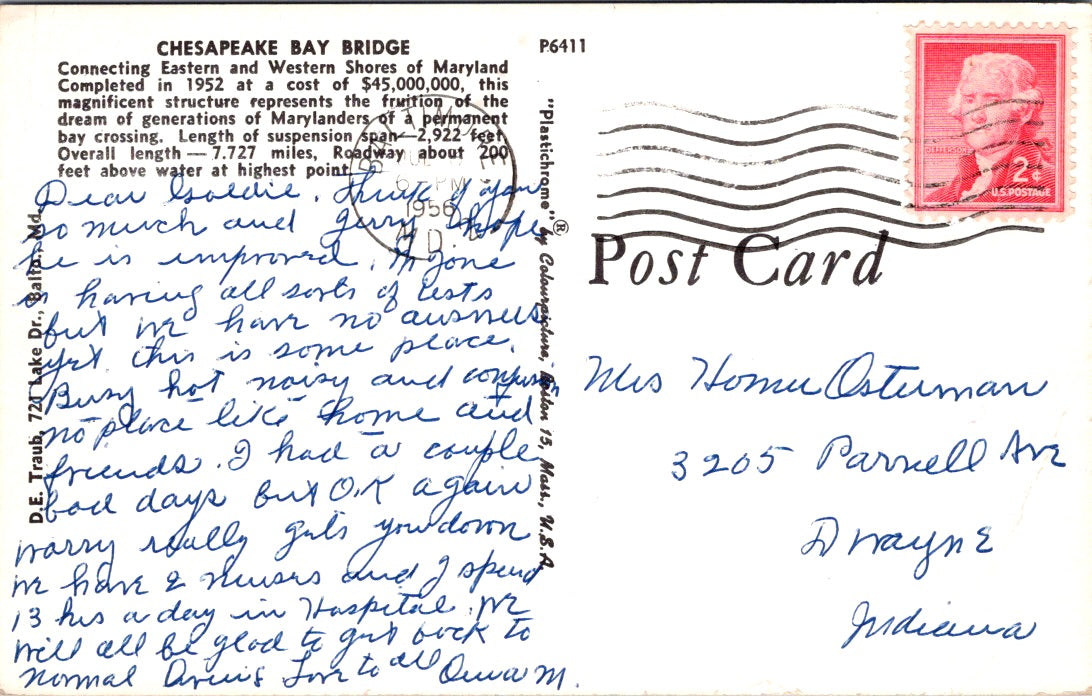 CHESAPEAKE BAY BRIDGE
Connecting Eastern and Western Shores of Maryland
Completed in 1952 at a cost of $45,000,000, this
magnificent structure represents the fruition of the
dream of generations of Marylanders of a permanent
bay crossing. Length of suspension span—2,922 feet
Overall length — 7.727 miles, Roadway about 200
feet above water at highest point.
P6411
Dear Goldie. Think of you
so much and Jerry I hope
he is improved.
is having all sorts of tests
but we have no answers
yet this is some place.
Busy hot noisy and
no place like home and
friends. I had a couple
bad days but O.K again
worry really gets you down
we have 2 nurses and I spend
13 hrs a day in Hospital. We
will all be glad to get back to
normal Love to all M.
D.E. Traub, 721 Lake Dr., Balto., Md.
"Plastichrome"® by Colourpicture, Boston 15, Mass., U.S.A
6 - PM
1956
MD.
JEFFERSON
2¢
U.S. POSTAGE
Post Card
Mrs Homer Osterman
3205 Parnell Ave
Ft Wayne
Indiana